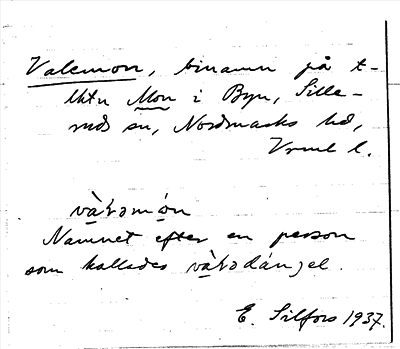 Valemon, binamn på t-
lktn Mon i Byn, Sille-
ruds sn, Nordmarks hd,
Vrml l.
vàḷəmón
Namnet efter en person
som kallades vàḷədánjel.
E. Silfors 1937.